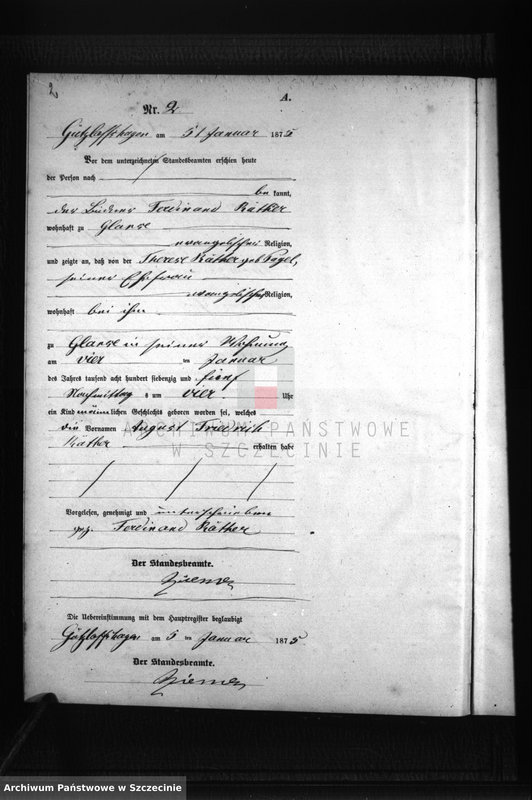 2
A.
Nr. 2
Gützlaffshagen am 5t Januar 1875
Vor dem unterzeichneten Standesbeamten erschien heute
der Person nach
be kannt,
der Büdner Ferdinand Räthker
wohnhaft zu Glansee
evangelischer Religion,
und zeigte an, daß von der Therese Räthker geb Pagel,
seiner Ehefrau
evangelischer Religion,
wohnhaft bei ihm
zu Glansee in seiner Wohnung
am vier ten Januar
des Jahres tausend acht hundert siebenzig und fünf
Nachmittag s um vier Uhr
ein Kind männlichen Geschlechts geboren worden sei, welches
die Vornamen August Friedrich
erhalten habe
ARCHIWUM PAŃSTWOWE
W SZCZECINIE
Vorgelesen, genehmigt und unterschrieben
gez. Ferdinand Räthker
Der Standesbeamte.
Die Uebereinstimmung mit dem Hauptregister beglaubigt
Gützlaffshagen am 5 ten Januar 1875
Der Standesbeamte.
Archiwum Państwowe w Szczecinie